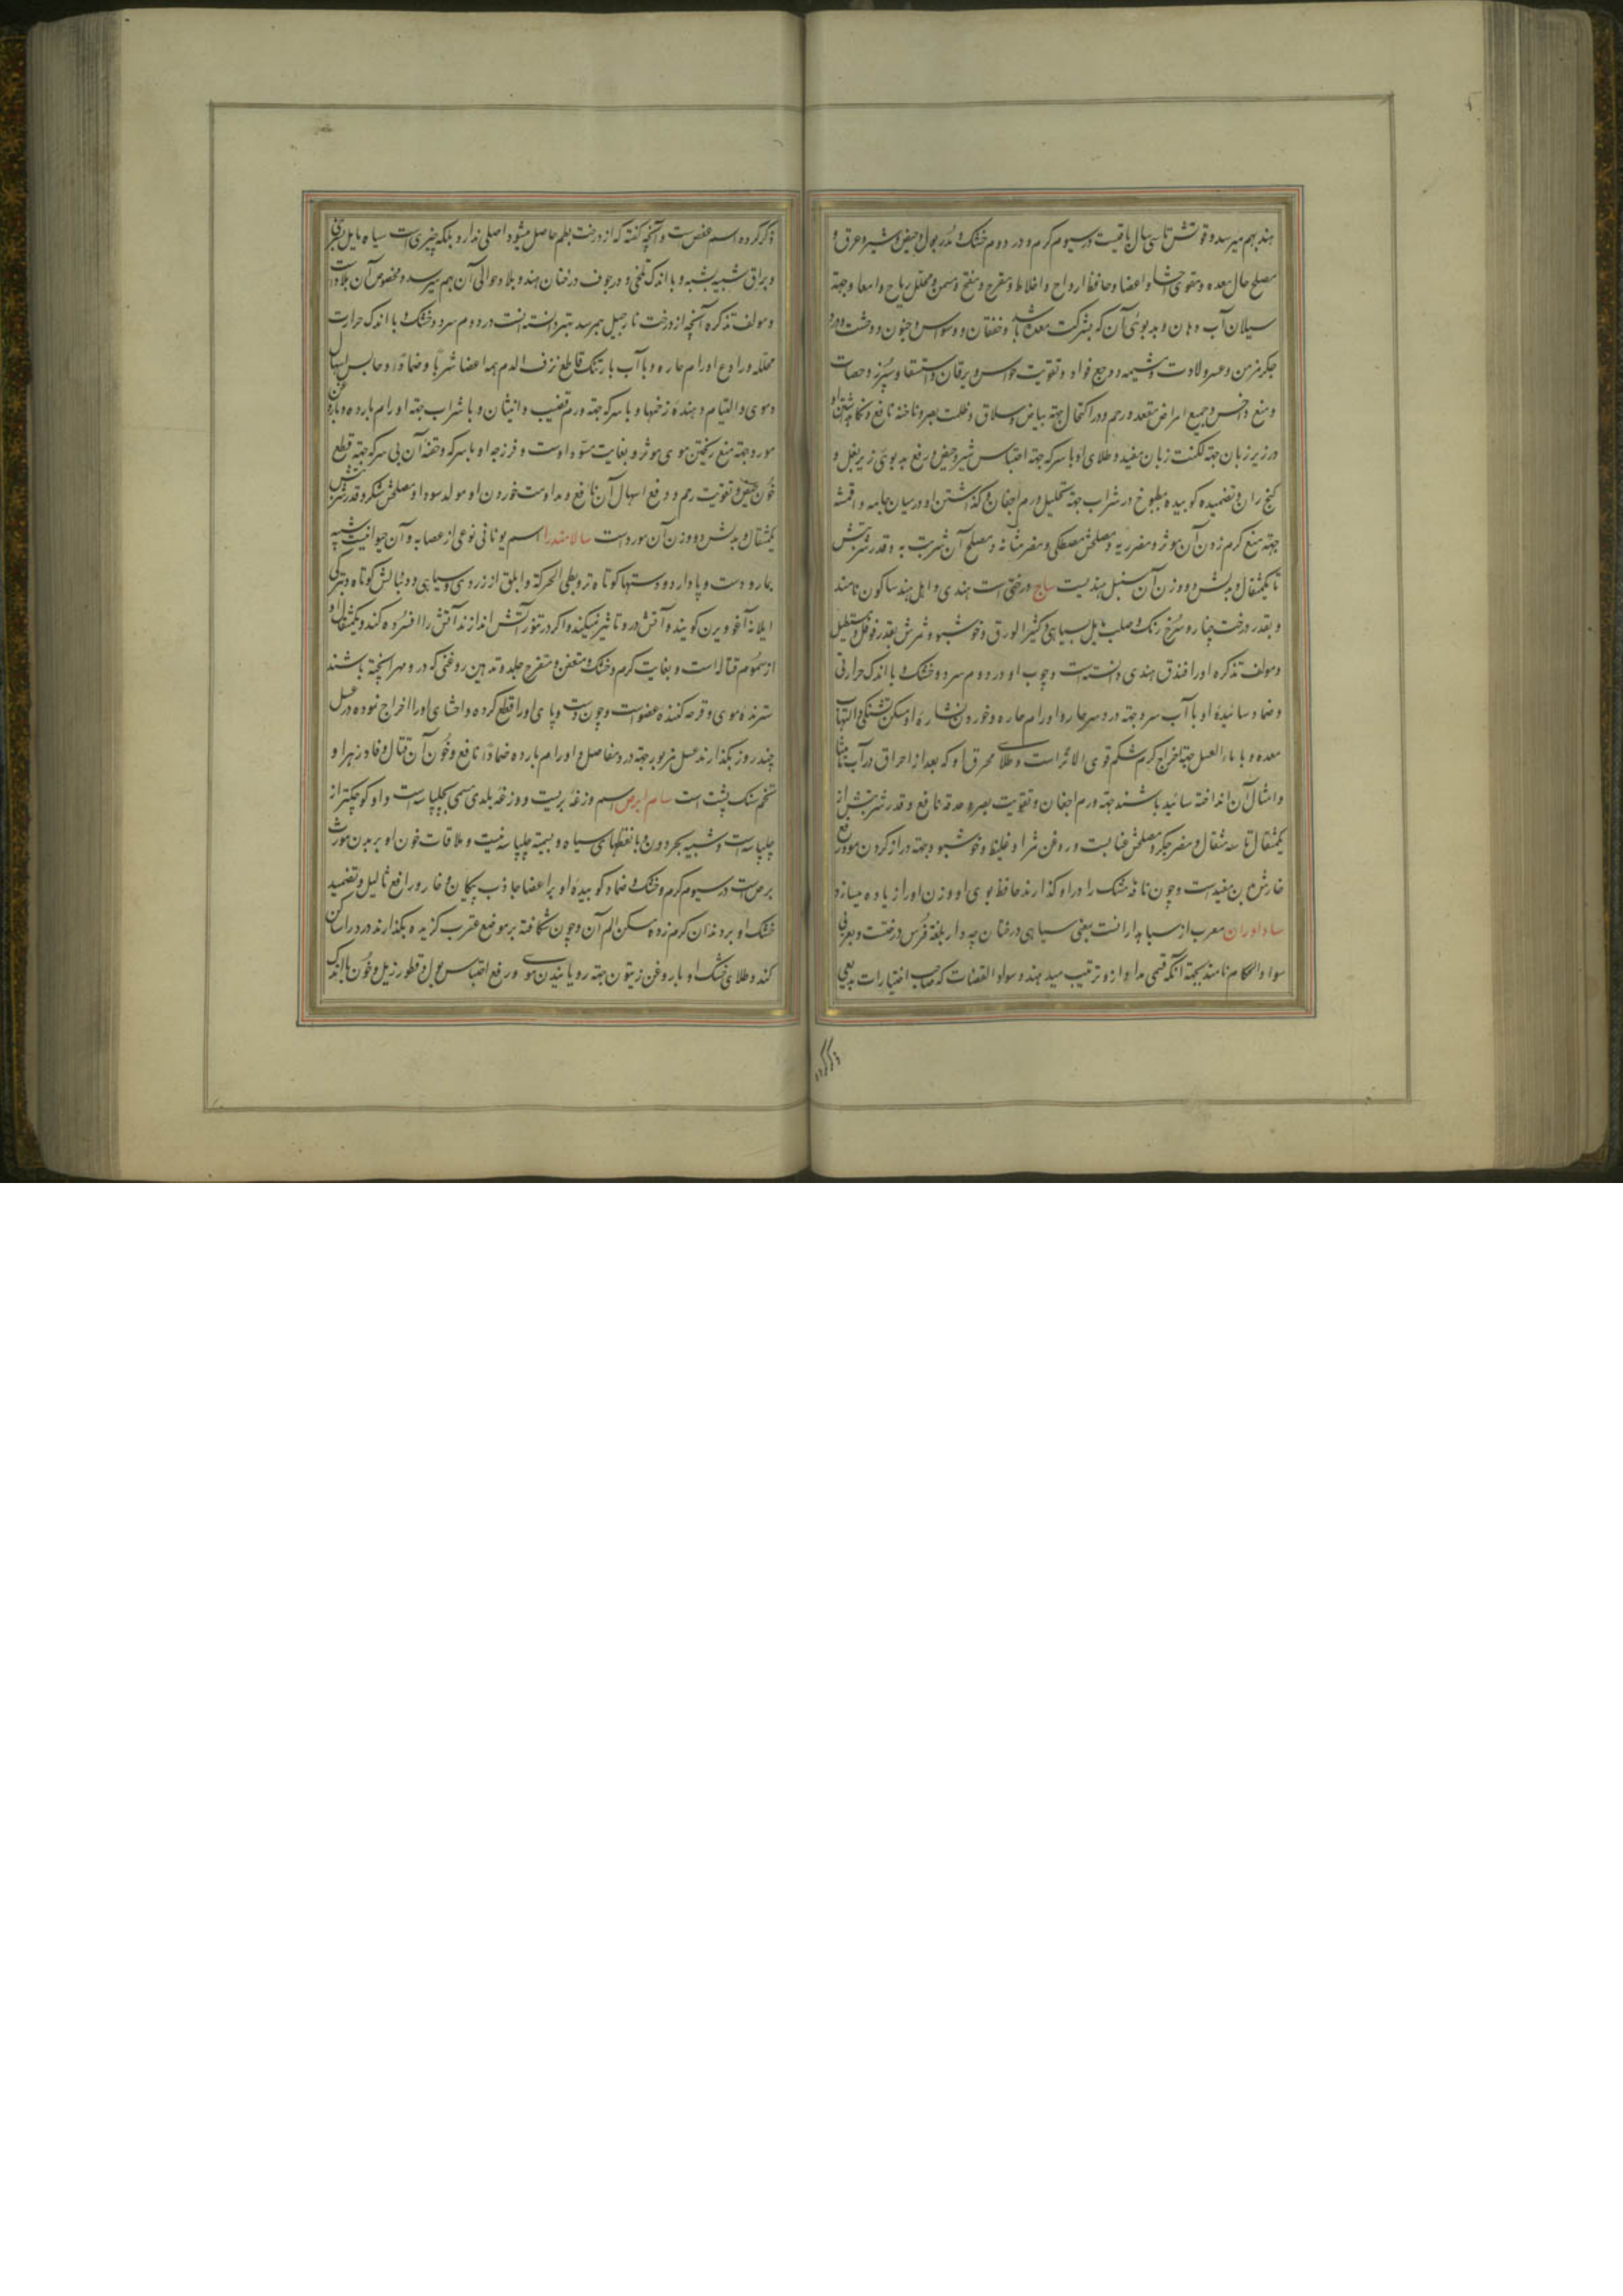 هند بهم میرسد و قوتش تا سی سال باقیست در سیوم کرم و در دوم خشک و مدر بول و حیض و شیر و عرق و
مصلح حال معده و مقوی احشا و اعضا و حافظ ارواح و اخلاط و مفرح و مفتح و مسمن و محلل ریاح و امعا و جهة
سیلان آب دهان و بدبوئی آن که بشرکت معده باشد و خفقان و وسواس و جنون و وحشت و درد
جکر مزمن و عسر ولادت و مشیمه و وجع فواد و تقویت حواس و یرقان و استسقا و سپرز و حصات
و منع داخس و جمیع امراض مقعد و رحم و در اکتحال جهة بیاض و سلاق و ظلمت بصر و ناخنه نافع و نکاه داشتن او
در زیر زبان جهة لکنت زبان مفید و طلای او با سرکه جهة احتباس شیر و حیض و رفع بدبوی زیر بغل و
کنج ران و تضمید کوبیده مطبوخ در شراب جهة تحلیل ورم اجفان و کذاشتن او در میان جامه و اقمشه
جهة منع کرم زدن آن موثر و مضر ریه و مصلحش مصطکی و مضر مثانه و مصلح آن شربت به و قدر شربتش
تا یکمثقال و بدلش دو وزن آن سنبل هندیست ساج درختی است هندی و اهل هند ساکون نامند
و بقدر درخت چنار و سرخ رنک و صلب مایل بسیاهی و کثیر الورق و خوشبو و ثمرش بقدر فوفل و مستطیل
و مولف تذکره او را فندق هندی دانسته است و چوب او در دوم سرد و خشک با اندک حرارتی
و ضماد سائیده او با آب سرد جهة درد سر حار و اورام حاره و خوردن نشاره او مسکن تشنکی و التهاب
معده و با ماء العسل جهة اخراج کرم شکم قوی الاثر است و طلای محرق او که بعد از احراق در آب مامیثا
و امثال آن انداخته سائیده باشند جهة ورم اجفان و تقویت بصر و حدقه نافع و قدر شربتش از
یکمثقال تا سه مثقال و مضر جکر و مصلحش عنابست و روغن ثمر او غلیظ و خوشبو و جهة دراز کردن مو و رفع
خارش بدن مفید است و چون نافه مشک را در او کذارند حافظ بوی او و وزن او را زیاده میسازد
ساداوران معرب از سیاه داران است یعنی سیاهی درختان چه دار بلغة فرس درختست و بعربی
سواد الحکام نامند بجهة آنکه قسمی مداد ازو ترتیب میدهند و سواد القضات که صاحب اختیارات بدیعی
ذکر کرده
ذکر کرده اسم عفص است و آنچه کفته که از درخت بطم حاصل میشود اصلی ندارد بلکه چیزی است سیاه مایل بسرخی
و براق شبیه بشبه و با اندک تلخی و در جوف درختان هند و بلاد حوالی آن بهم میرسد و مخصوص آن بلاد است
و مولف تذکره آنچه از درخت نارجیل بهم رسد بهتر دانسته است در دوم سرد و خشک با اندک حرارت
محلله و رادع اورام حاره و با آب بارتنک قاطع نزف الدم همه اعضا شربا و ضمادا و حابس اسهال
دموی و التیام دهنده زخمها و با سرکه جهة ورم قضیب و انثیان و با شراب جهة اورام بارده و با روغن
مورد جهة منع ریختن موی موثر و بغایت مسود اوست و فرزجه او با سرکه و حقنه آن بی سرکه جهة قطع
خون حیض و تقویت رحم و رفع اسهال آن نافع و مداومت خوردن او مولد سودا و مصلحش شکر و قدر شربتش
یکمثقال و بدلش دو وزن آن مورد است سالامندرا اسم یونانی نوعی از عصایه و آن حیوانیست شبیه
بمار و دست و پا دارد و دستها کوتاه تر و بطی الحرکة و ابلق از زردی و سیاهی و دنبالش کوتاه و بترکی
ایلانه آغو ویرن کویند و آتش درو تاثیر نمیکند و اکر در تنور آتش اندازند آتش را افسرده کند و یکمثقال او
از سموم قتاله است و بغایت کرم و خشک و معفن و مقرح جلد و تدهین روغنی که درو مهرا پخته باشند
سترنده موی و قرحه کننده عضو است و چون دست و پای او را قطع کرده و احشای او را اخراج نموده در عسل
چند روز بکذارند عسل مزبور جهة درد مفاصل و اورام بارده ضمادا نافع و خون آن قتال و فادزهر او
تخم سنک پشت است سام ابرص اسم وزغه بریست و وزغه بلدی مسمی بچلپاسه است و او کوچکتر از
چلپاسه است و شبیه بحردون و با نقطهای سیاه و بسمیة چلپاسه نیست و ملاقات خون او بر بدن مورث
برص است در سیوم کرم و خشک و ضماد کوبیده او بر اعضا جاذب پیکان و خار و رافع ثالیل و تضمید
خشک او بر دندان کرم زده مسکن الم آن و چون شکافته بر موضع عقرب کزیده بکذارند درد را ساکن
کند و طلای خشک او با روغن زیتون جهة رویانیدن موی و رفع احتباس بول و قطور زبل و خون با اندک